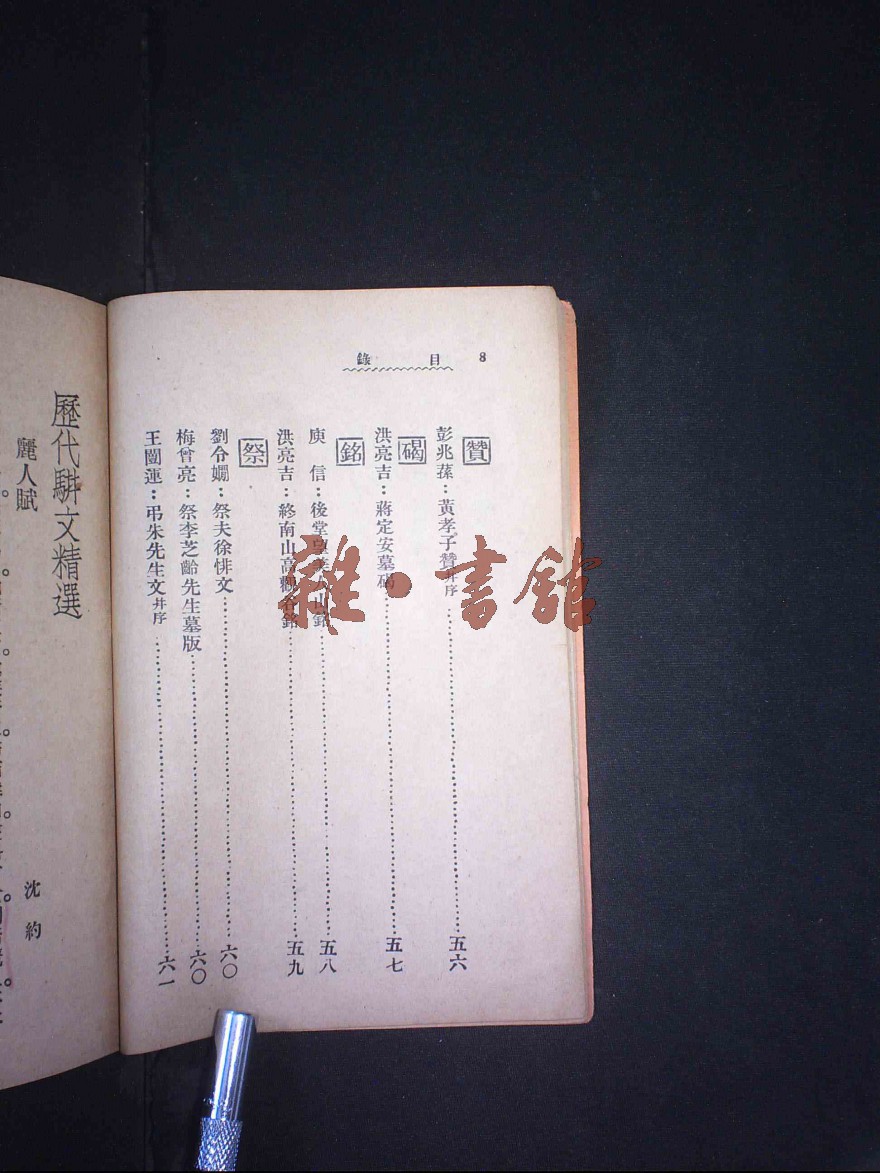 8 目錄
贊
彭兆蓀：黃孝子贊并序……五六
碣
洪亮吉：蔣定安墓碣……五七
銘
庾信：後堂望美人山銘……五八
洪亮吉：終南山高觀谷銘……五九
祭
劉令嫺：祭夫徐悱文……六〇
梅曾亮：祭李芝齡先生墓版……六〇
王闓運：弔朱先生文并序……六一
歷代駢文精選
麗人賦
沈約
雜·書館